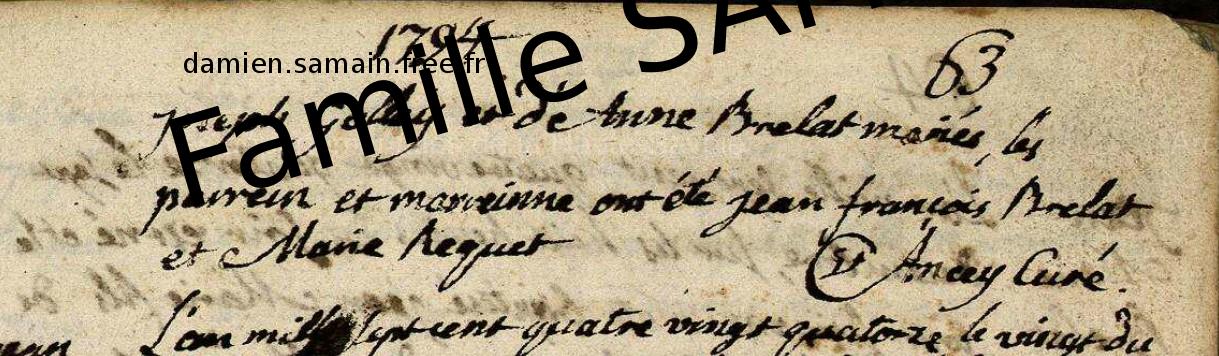 1794 63
damien.samain.free.fr
Famille SA
Joseph et de Anne Brelat mariés, les
parrein et marreinne ont été jean françois Brelat
et Marie Requet Ancey Curé.
L'an mille sept cent quatre vingt quatorze le vingt du